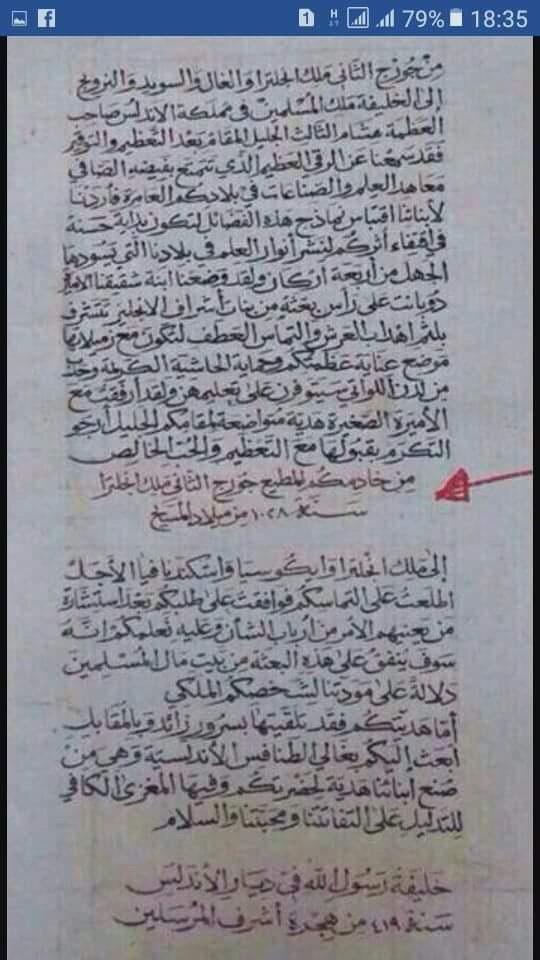 1 H 79% 18:35
من جورج الثاني ملك انجلترا والغال والسويد والنرويج
إلى الخليفة ملك المسلمين في مملكة الاندلس صاحب
العظمة هشام الثالث الجليل المقام بعد التعظيم والتوقير
فقد سمعنا عن الرقي العظيم الذي تتمتع بفيضه الصافي
معاهد العلم والصناعات في بلادكم العامرة فأردنا
لأبنائنا اقتباس نماذج هذه الفضائل لتكون بداية حسنة
في إقتفاء أثركم لنشر أنوار العلم في بلادنا التي يسودها
الجهل من أربعة أركان ولقد وضعنا ابنة شقيقنا الأميرة
دوبانت على رأس بعثة من بنات أشراف الانجليز تتشرف
بلثم أهداب العرش والتماس العطف لتكون مع زميلاتها
موضع عناية عظمتكم وحماية الحاشية الكريمة وحدب
من لدن اللواتي سيتوفرن على تعليمهن ولقد أرفقت مع
الأميرة الصغيرة هدية متواضعة لمقامكم الجليل أرجو
التكرم بقبولها مع التعظيم والحب الخالص
من خادمكم المطيع جورج الثاني ملك انجلترا
سنة ١٠٢٨ من ميلاد المسيح
إلى ملك انجلترا وايكوسيا واسكندنافيا الأجل
اطلعت على التماسكم فوافقت على طلبكم بعد استشارة
من يعنيهم الأمر من أرباب الشأن وعليه نعلمكم انه
سوف ينفق على هذه البعثة من بيت مال المسلمين
دلالة على مودتنا لشخصكم الملكي
أما هديتكم فقد تلقيتها بسرور زائد وبالمقابل
أبعث إليكم بغالي الطنافس الأندلسية وهي من
صنع أبنائنا هدية لحضرتكم وفيها المغزى الكافي
للتدليل على التفاتتنا ومحبتنا والسلام
خليفة رسول الله في ديار الأندلس
سنة ٤١٩ من هجرة أشرف المرسلين